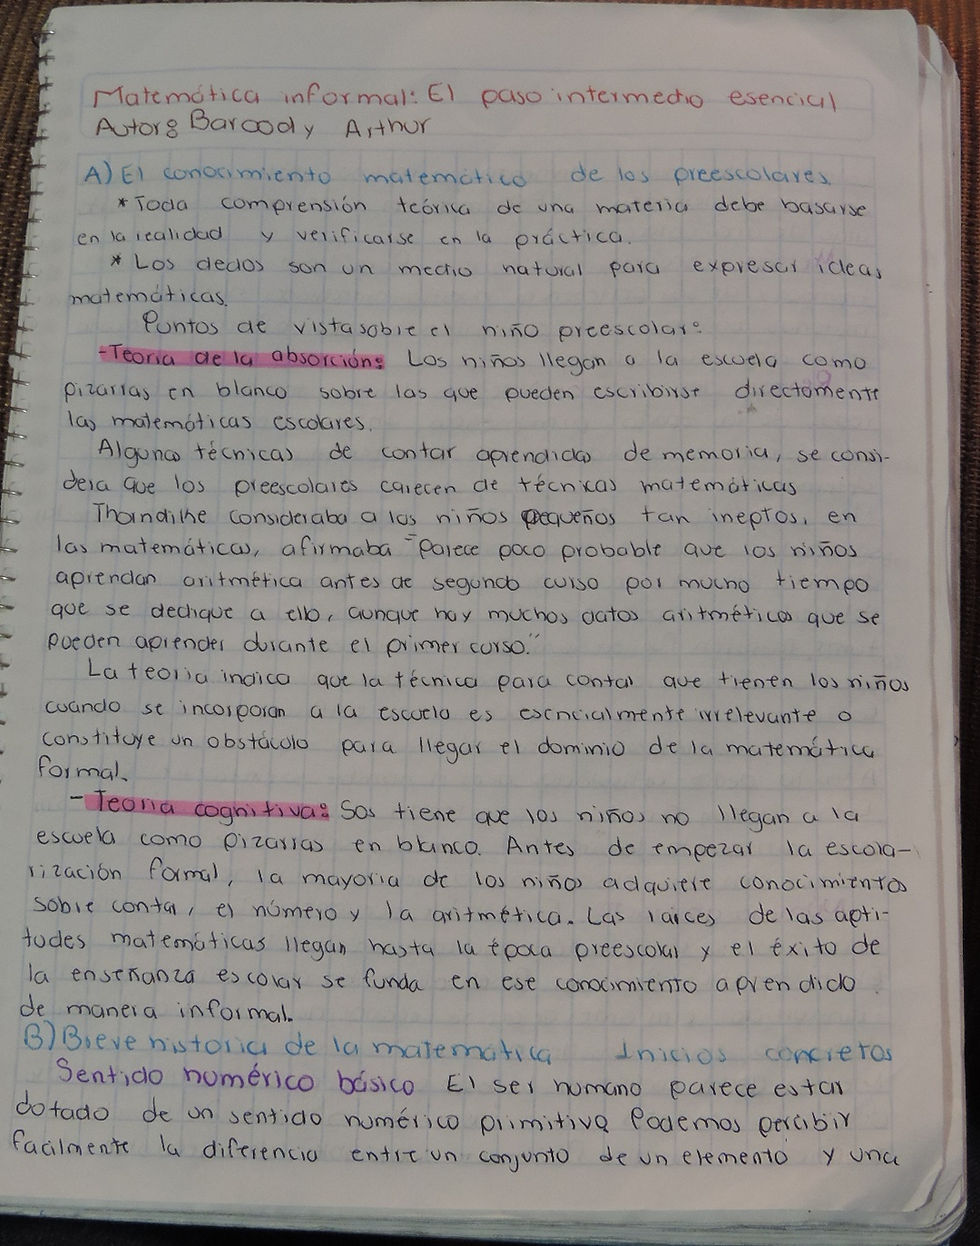 Matemática informal: El paso intermedio esencial
Autor: Baroody Arthur
A) El conocimiento matemático de los preescolares.
* Toda comprensión teórica de una materia debe basarse
en la realidad y verificarse en la práctica.
* Los dedos son un medio natural para expresar ideas
matemáticas.
Puntos de vista sobre el niño preescolar:
-Teoria de la absorción: Los niños llegan a la escuela como
pizarras en blanco sobre las que pueden escribirse directamente
las matemáticas escolares.
Algunas técnicas de contar aprendidas de memoria, se consi-
dera que los preescolares carecen de técnicas matemáticas
Thorndike consideraba a los niños pequeños tan ineptos, en
las matemáticas, afirmaba "Parece poco probable que los niños
aprendan aritmética antes de segundo curso por mucho tiempo
que se dedique a ello, aunque hay muchos datos aritméticos que se
pueden aprender durante el primer curso."
La teoria indica que la técnica para contar que tienen los niños
cuando se incorporan a la escuela es esencialmente irrelevante o
constituye un obstáculo para llegar el dominio de la matemática
formal.
- Teoria cognitiva: Sos tiene que los niños no llegan a la
escuela como pizarras en blanco. Antes de empezar la escola-
rización formal, la mayoria de los niños adquiere conocimientos
sobre contar, el número y la aritmética. Las raices de las apti-
tudes matemáticas llegan hasta la época preescolar y el éxito de
la enseñanza escolar se funda en ese conocimiento aprendido
de manera informal.
B) Breve historia de la matemática Inicios concretos
Sentido numérico básico El ser humano parece estar
dotado de un sentido numérico primitivo Podemos percibir
facilmente la diferencia entre un conjunto de un elemento y una